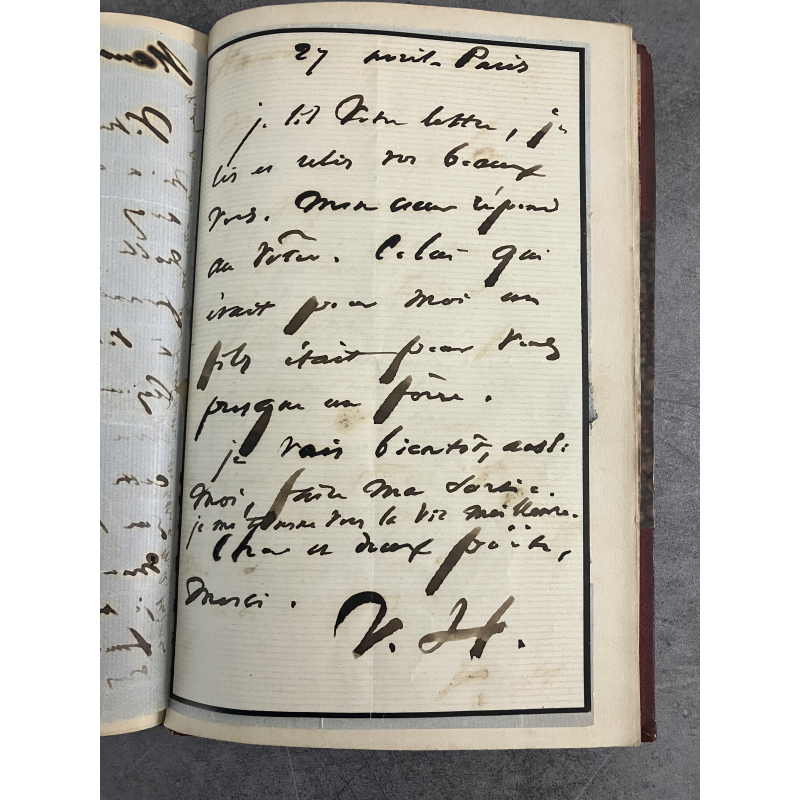 27 avril - Paris
je lis Votre lettre, je
lis et relis vos beaux
vers. Mon cœur répond
au Vôtre. Celui qui
était pour moi un
fils était pour Vous
presque un frère.
je vais bientôt, aussi
moi, faire ma sortie.
je me tourne vers la vie meilleure.
Cher et doux poëte,
merci.
V. H.